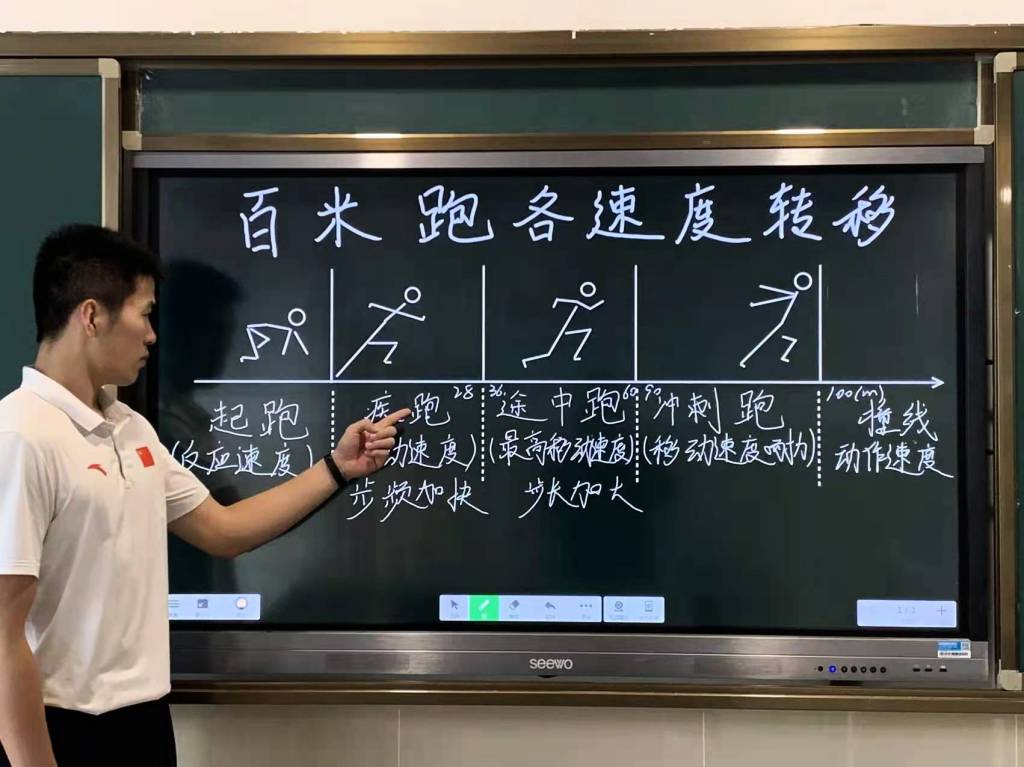 百米跑各速度转移
起跑 疾跑 28 36 途中跑 60 90 冲刺跑 100(m) 撞线
(反应速度) 动速度) (最高移动速度) (移动速度耐力) 动作速度
步频加快 步长加大
seewo